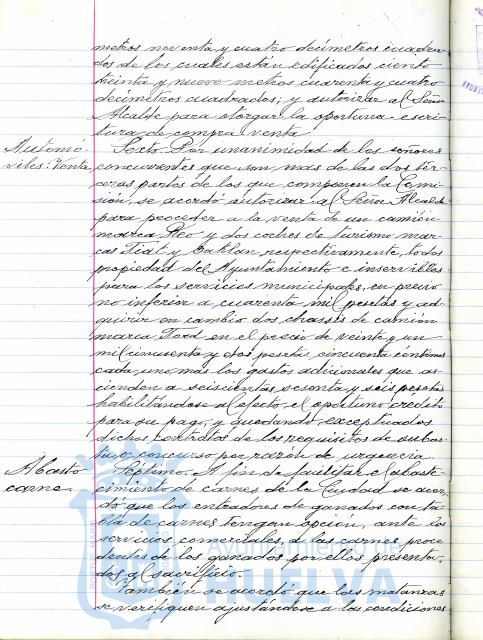 metros noventa y cuatro decímetros cuadra-
dos de los cuales están edificados ciento
treinta y nueve metros cuarenta y cuatro
decímetros cuadrados; y autorizar al Señor
Alcalde para otorgar la oportuna escri-
tura de compra venta
Automó-
viles: Venta.
Sexto. Por unanimidad de los señores
concurrentes que son mas de las dos ter-
ceras partes de los que componen la Comi-
sión, se acordó autorizar al Señor Alcalde
para proceder a la venta de un camión
marca Reo y dos coches de turismo mar-
cas Fiat y Oaklan, respectivamente, todos
propiedad del Ayuntamiento e inservibles
para los servicios municipales, en precio
no inferior a cuarenta mil pesetas y ad-
quirir en cambio dos chassis de camión
marca Ford en el precio de veinte y un
mil cincuenta y dos pesetas cincuenta centimos
cada uno mas los gastos adicionales que as-
cienden a seiscientas sesenta y seis pesetas
habilitándose al efecto el oportuno crédito
para su pago, y quedando exceptuados
dichos contratos de los requisitos de subas-
ta o concurso por razón de urgencia
Abasto
carne.
Séptimo. A fin de facilitar el abaste-
cimiento de carnes de la Ciudad se acor-
dó que los entradores de ganados con ta-
bla de carnes tengan opción, ante los
servicios comerciales, a las carnes proce-
dentes de los ganados por ellos presenta-
dos al sacrificio.
También se acordó que las matanzas
se verifiquen ajustándose a las condiciones
HUELVA